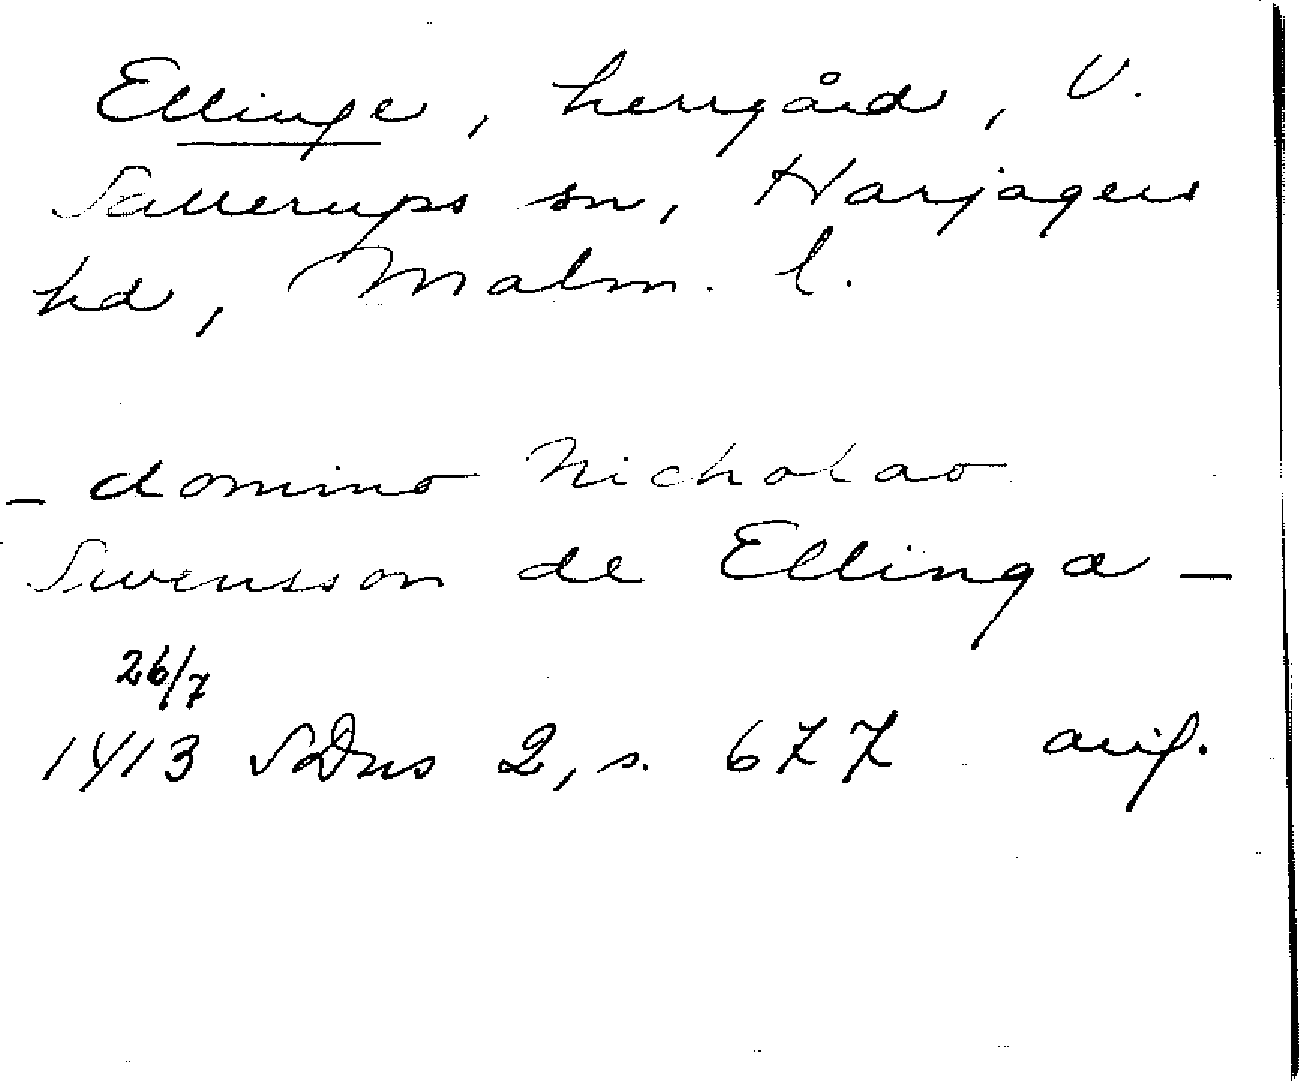 Ellinge, herrgård, V.
Sallerups sn, Harjagers
hd, Malm. l.
– domino Nicholao
Swensson de Ellinga –
26/7
1413 SDns 2, s. 677 avig.